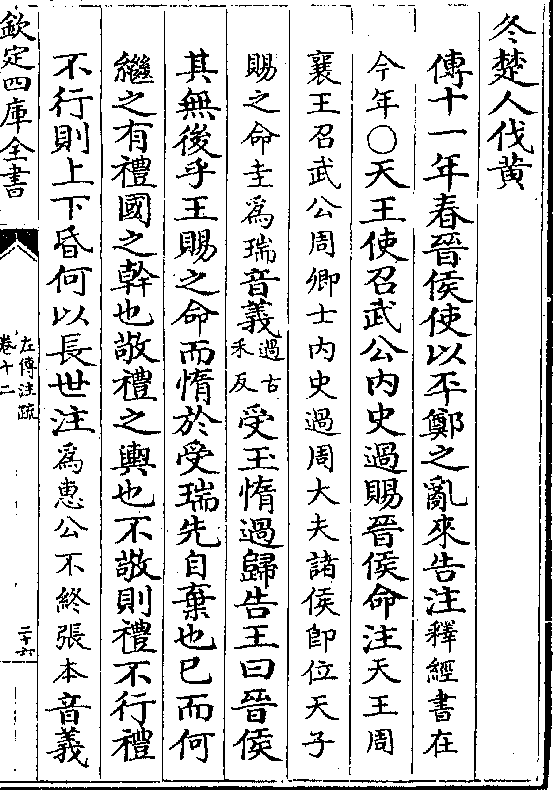 冬楚人伐黄
傳十一年春晉侯使以㔻鄭之亂來告注釋經書在
今年○天王使召武公内史過賜晉侯命注天王周
襄王召武公周卿士内史過周大夫諸侯即位天子
賜之命圭爲瑞音義過古禾反受玉惰過歸告王曰晉侯
其無後乎王賜之命而惰於受瑞先自棄也已而何
繼之有禮國之幹也敬禮之輿也不敬則禮不行禮
不行則上下昏何以長世注爲惠公不終張本音義
欽定四庫全書
左傳注疏
卷十二
二十六